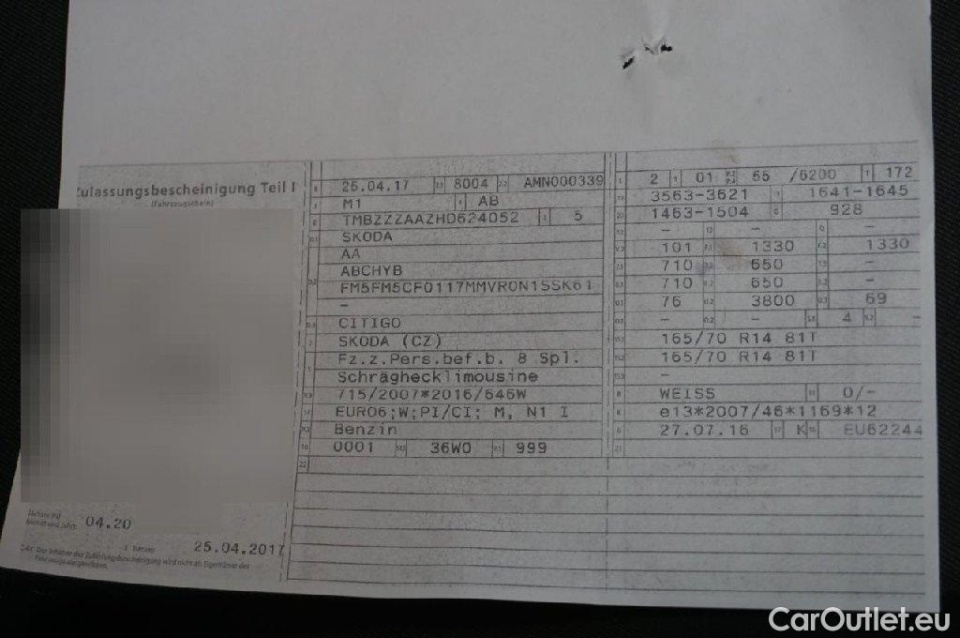 Zulassungsbescheinigung Teil I
(Fahrzeugschein)
25.04.17 8004 AMN000339
M1 AB
TMBZZZAAZHD624052 5
SKODA
AA
ABCHYB
FM5FM5CF0117MMVR0N1SSK61
–
CITIGO
SKODA (CZ)
Fz.z.Pers.bef.b. 8 Spl.
Schräghecklimousine
715/2007*2016/646W
EURO6;W;PI/CI; M, N1 I
Benzin
0001 36W0 999
22
2 01 55 /6200 172
3563-3621 1641-1645
1463-1504 928
– – –
101 1330 1330
710 650 –
710 650 –
76 3800 69
– – 4 –
165/70 R14 81T
165/70 R14 81T
–
WEISS 0/-
e13*2007/46*1169*12
27.07.16 K EU62244
04.20
25.04.2017
CarOutlet.eu